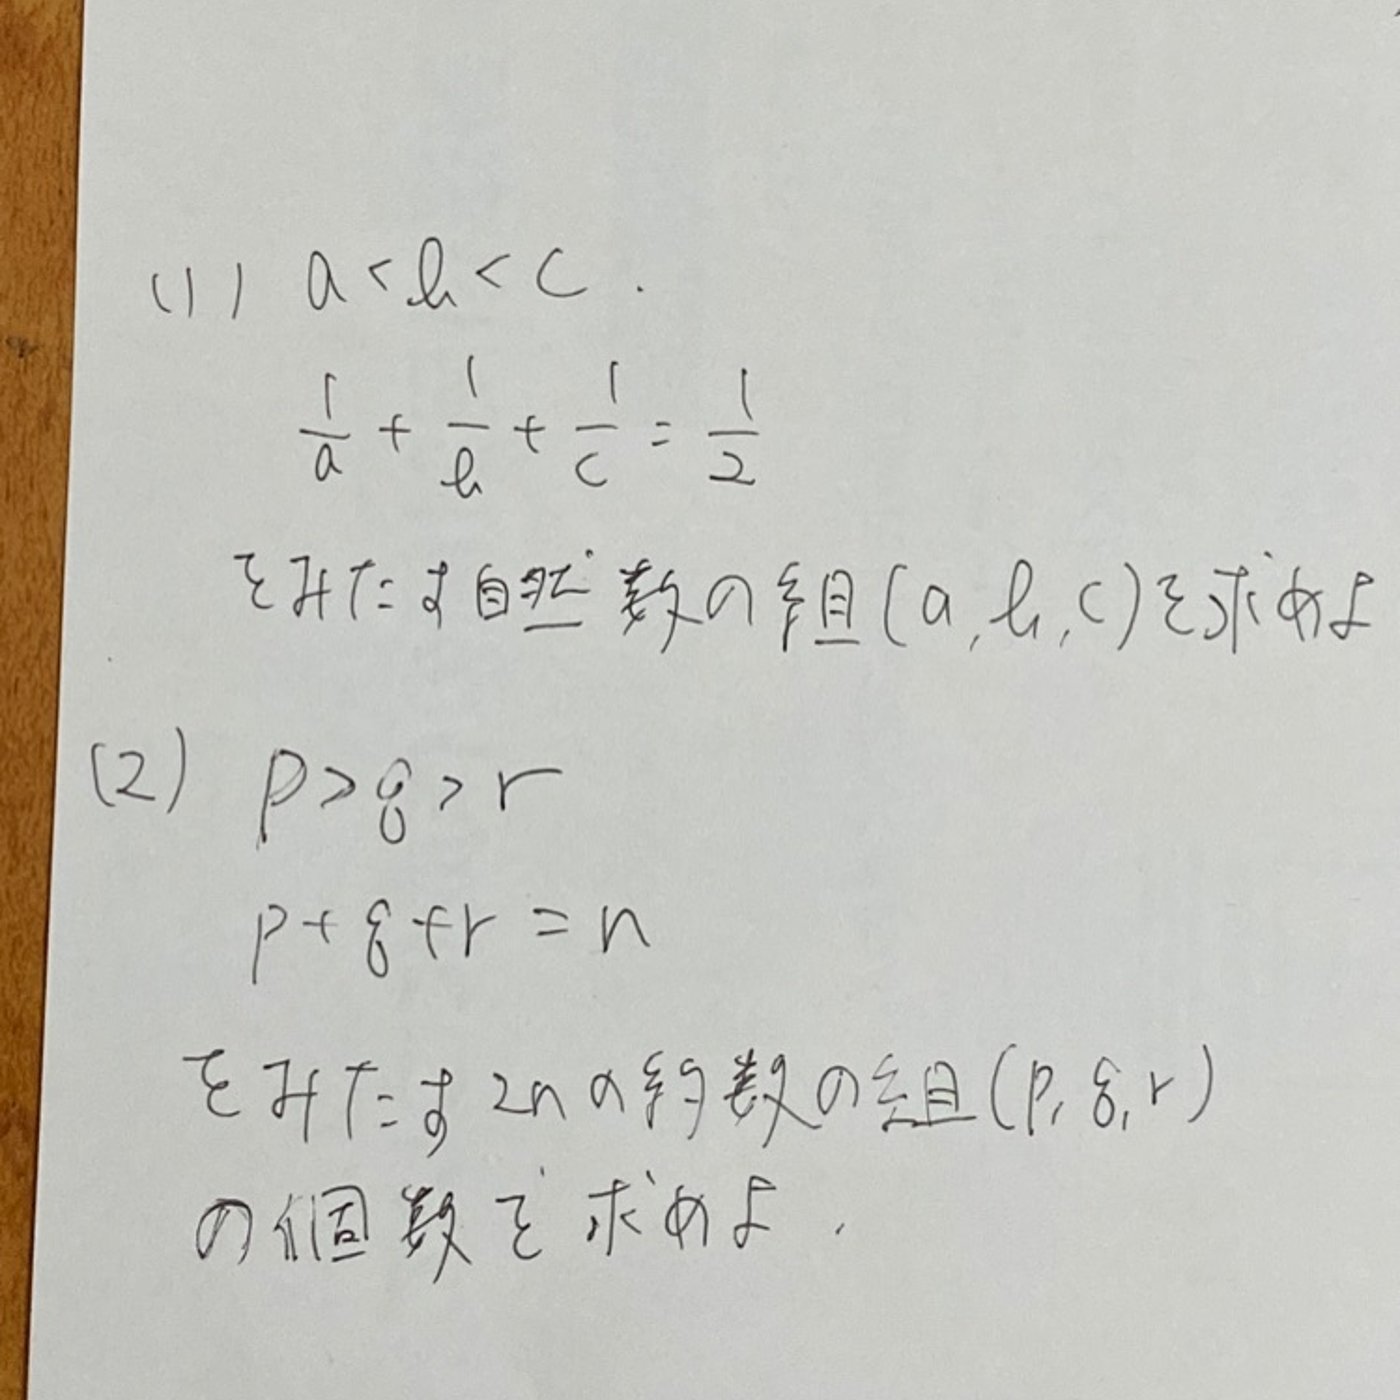 (1) a < b < c .
1/a + 1/b + 1/c = 1/2
をみたす自然数の組(a, b, c)を求めよ
(2) p > q > r
p + q + r = n
をみたす2nの約数の組(p, q, r)
の個数を求めよ.